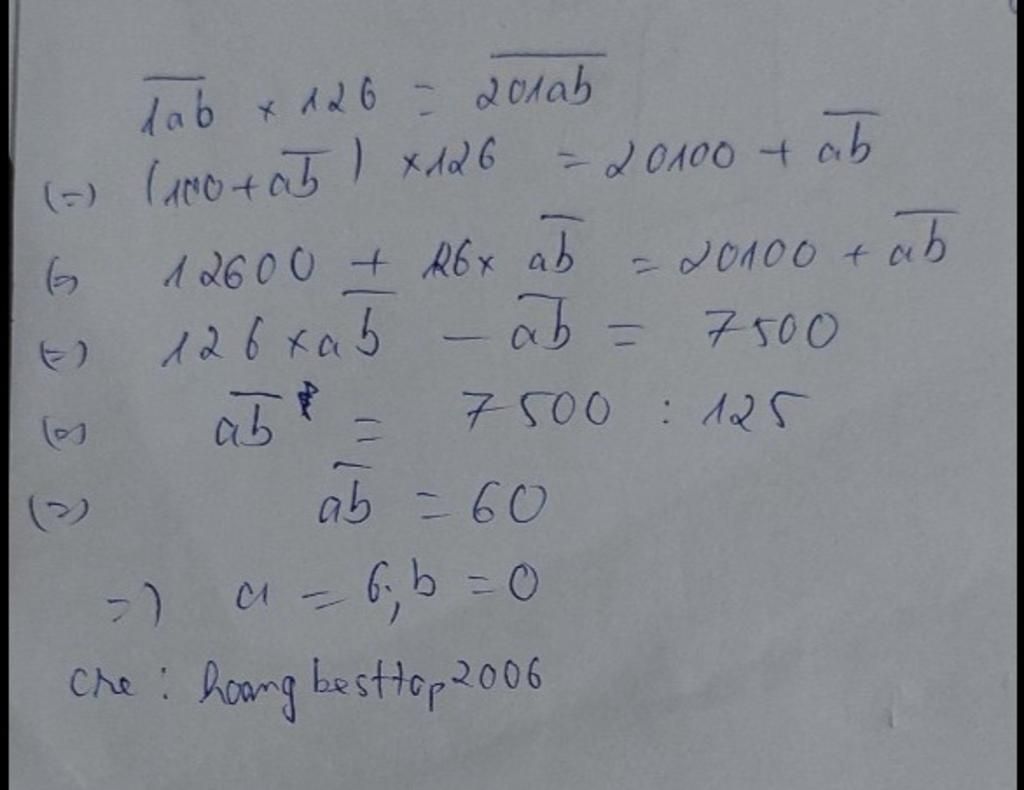 1ab × 126 = 201ab
(=) (100 + ab) × 126 = 20100 + ab
(=) 12600 + 126 × ab = 20100 + ab
(=) 126 × ab - ab = 7500
(=) ab = 7500 : 125
(=) ab = 60
=) a = 6; b = 0
Cre : hoangbesttop2006